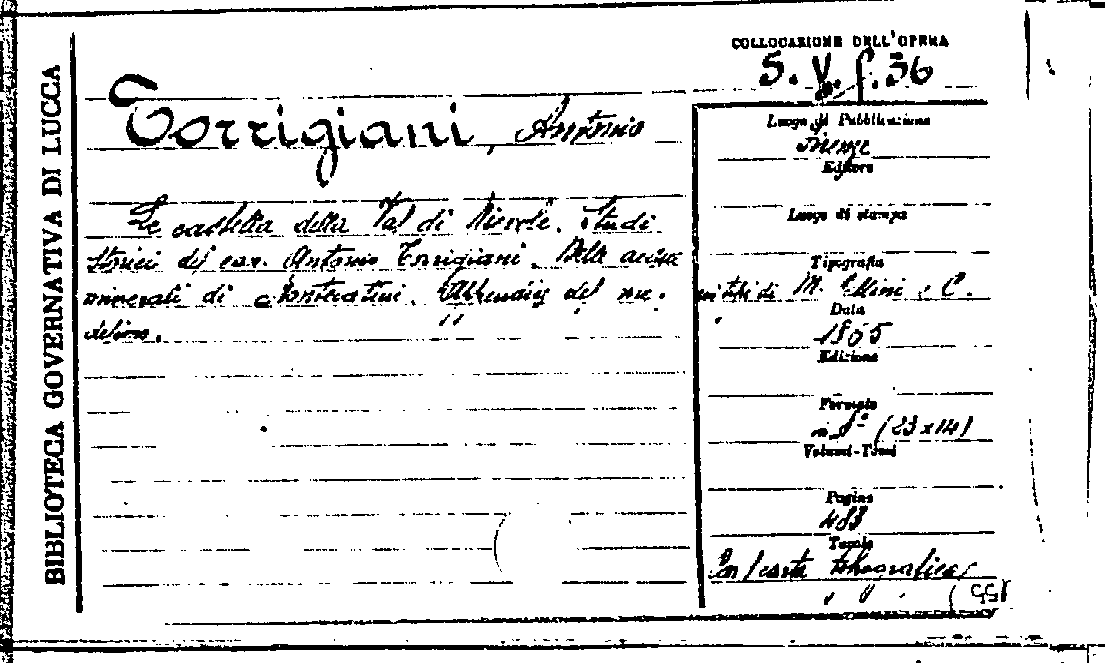 BIBLIOTECA GOVERNATIVA DI LUCCA
COLLOCAZIONE DELL'OPERA
5. V. f. 36
Torrigiani, Antonio
Le castella della Val di Nievole. Studi
storici del cav. Antonio Torrigiani. Delle acque
minerali di Montecatini. Appendice del me-
desimo.
Luogo di Pubblicazione
Firenze
Editore
Luogo di stampa
Tipografia
di M. Cellini e C.
Data
Edizione
Formato
in 8° (23x14)
Volumi-Tomi
Pagine
483
Tavole
Con carta topografica